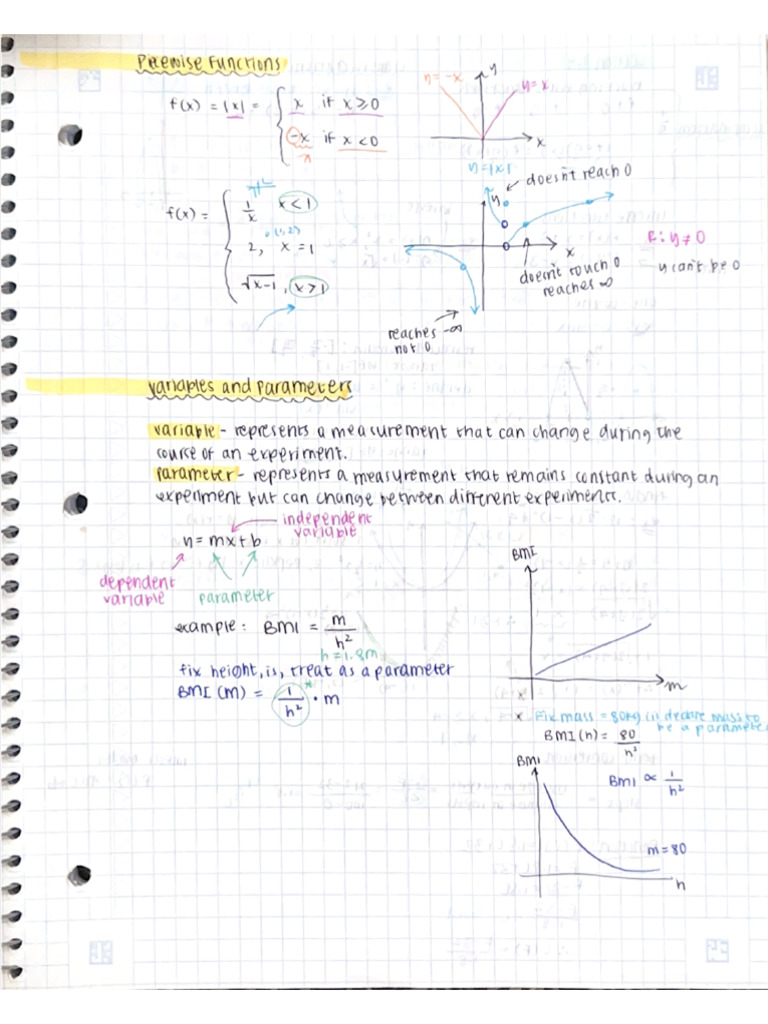 Piecewise Functions
f(x) = |x| = { x if x ≥ 0
-x if x < 0
y = -x
y
y = x
x
y = |x|
f(x) = { 1/x x < 1
2, x = 1
√x-1, x > 1
(1,2)
y
doesn't reach 0
x
doesn't touch 0
reaches ∞
R: y ≠ 0
y can't be 0
reaches -∞
not 0
Variables and Parameters
variable - represents a measurement that can change during the
course of an experiment.
parameter - represents a measurement that remains constant during an
experiment but can change between different experiments.
independent
variable
y = mx + b
dependent
variable
parameter
example: BMI = m/h²
h = 1.8m
fix height, is, treat as a parameter
BMI (m) = 1/h² · m
BMI
m
x Fix mass = 80kg is declare mass to
be a parameter
BMI (h) = 80/h²
BMI
BMI ∝ 1/h²
m = 80
h